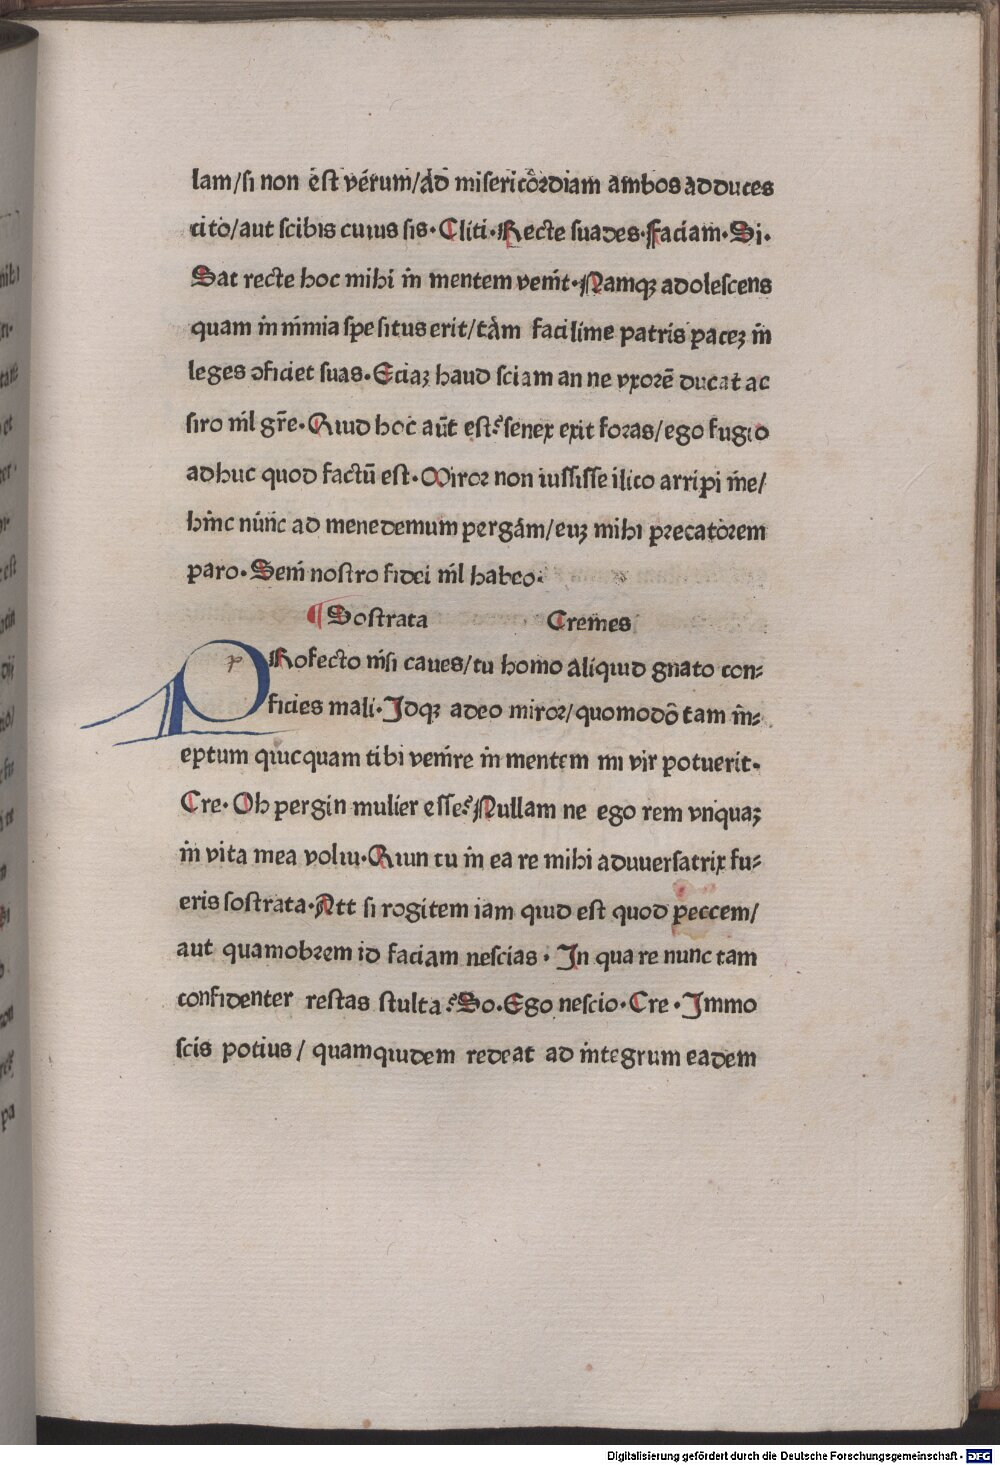 lam/si non est verum/ad misericordiam ambos adduces
cito/aut scibis cuius sis. Cliti. Recte suades. faciam. Si.
Sat recte hoc mihi in mentem venit. Namqꝫ adolescens
quam in inmia spe situs erit/tam facilime patris paceꝫ in
leges ↄficiet suas. Eciaꝫ haud sciam an ne vxorē ducat ac
siro nil gr̄e. Quid hoc aūt est? senex exit foras/ego fugio
adhuc quod factū est. Miror non iussisse ilico arripi me/
hinc nunc ad menedemum pergam/euꝫ mihi precatorem
paro. Seni nostro fidei nil habeo.
¶ Sostrata Cremes
PRofecto nisi caues/tu homo aliquid gnato con-
ficies mali. Idqꝫ adeo miror/quomodo tam in-
eptum quicquam tibi venire in mentem mi vir potuerit.
Cre. Oh pergin mulier esse? Nullam ne ego rem vnquaꝫ
in vita mea volui. Quin tu in ea re mihi aduuersatrix fu-
eris sostrata. Att si rogitem iam quid est quod peccem/
aut quamobrem id faciam nescias. In qua re nunc tam
confidenter restas stulta? So. Ego nescio. Cre. Immo
scis potius/ quamquidem redeat ad integrum eadem
Digitalisierung gefördert durch die Deutsche Forschungsgemeinschaft - DFG